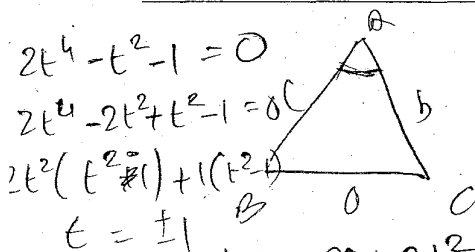 2t⁴ - t² - 1 = 0
2t⁴ - 2t² + t² - 1 = 0
2t²(t² - 1) + 1(t² - 1)
t = ±1
A
C
b
B
0
C